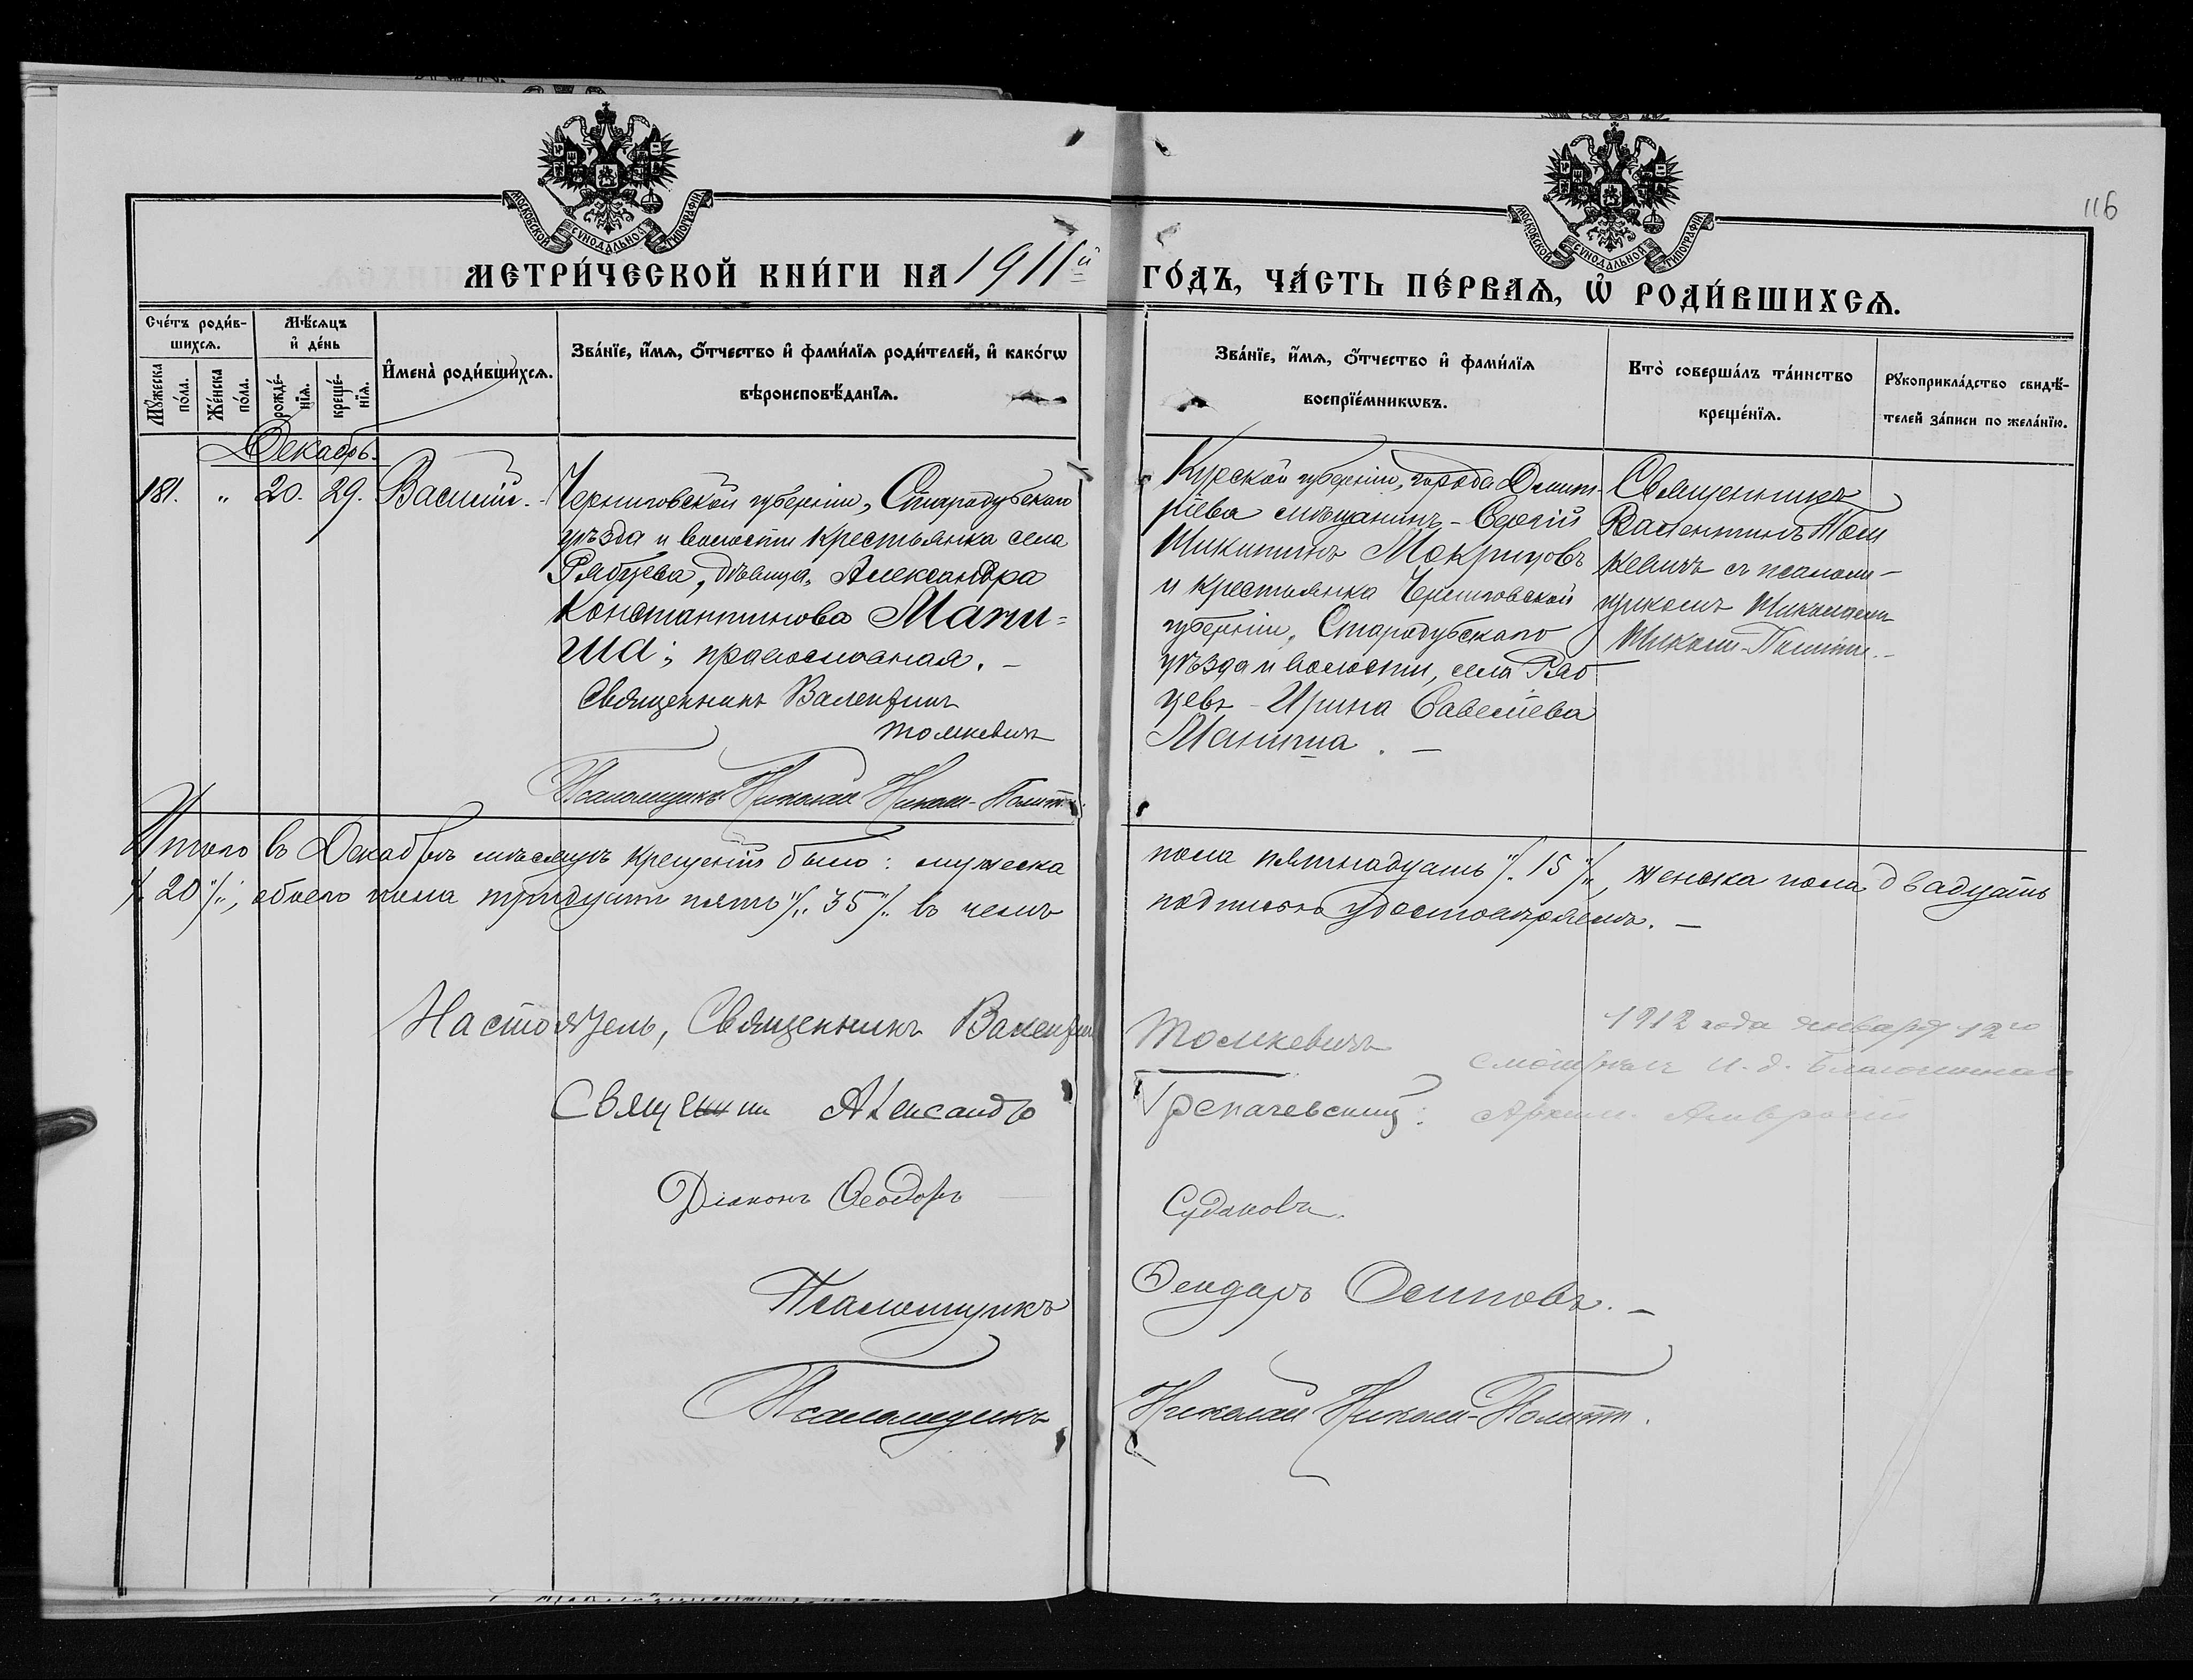 116
МОСКОВСКОЙ СУНОДАЛЬНОЙ ТИПОГРАФІИ
МОСКОВСКОЙ СУНОДАЛЬНОЙ ТИПОГРАФІИ
МЕТРИ́ЧЕСКОЙ КНИ́ГИ НА 1911й ГО́ДЪ, ЧА́СТЬ ПЕ́РВАѦ, Ѡ РОДИ́ВШИХСѦ.
Сче́тъ роди́в-
шихсѧ.
Мꙋ́жеска
по́ла.
Же́нска
по́ла.
Мѣ́сѧцъ
и҆ де́нь
рожде́-
нїѧ.
креще́-
нїѧ.
И҆мена̀ роди́вшихсѧ.
Зва́нїе, и҆́мѧ, ѻ҆́тчество и҆ фами́лїѧ роди́телей, и҆ како́гѡ
вѣроисповѣ́данїѧ.
Зва́нїе, и҆́мѧ, ѻ҆́тчество и҆ фами́лїѧ
воспрїе́мникѡвъ.
Кто̀ соверша́лъ та́инство
креще́нїѧ.
Рꙋкоприкла́дство свидѣ́-
телей за́писи по жела́нїю.
Декабрь.
181. " 20. 29. Василій.
Черниговской губерніи, Стародубскаго
уѣзда и волости крестьянка села
Рябцева, дѣвица, Александра
Константинова Мани-
ша; православная. –
Священникъ Валентинъ
Томкевичъ
Псаломщикъ Николай Николи-Полит
Курской губерніи, города Дмит-
ріева мѣщанинъ - Сергій
Никитинъ Мокрицовъ
и крестьянка Черниговской
губерніи, Стародубскаго
уѣзда и волости, села Ряб
цевъ - Ирина Савеліева
Маниша. –
Священникъ
Валентинъ Том
кевичъ съ псаломщ-
щикомъ Николаемъ
Николи-Полити. -
Итого въ Декабрѣ мѣсяцѣ крещеній было: мужеска пола пятнадцать /15/, женска пола двадцать
/20/; обоего пола тридцать пять /35/ въ чемъ подписью удостовѣряемъ. –
Настоятель, Священникъ Валентинъ Томкевичъ
Священник Александр
Діаконъ Ѳеодоръ Судаковъ.
Псаломщикъ Осиповъ. –
Псаломщикъ Николай Николи-Полити.
1912 года января 12го
смотрѣлъ И. д. Благочиннаго
Архим. Амвросій